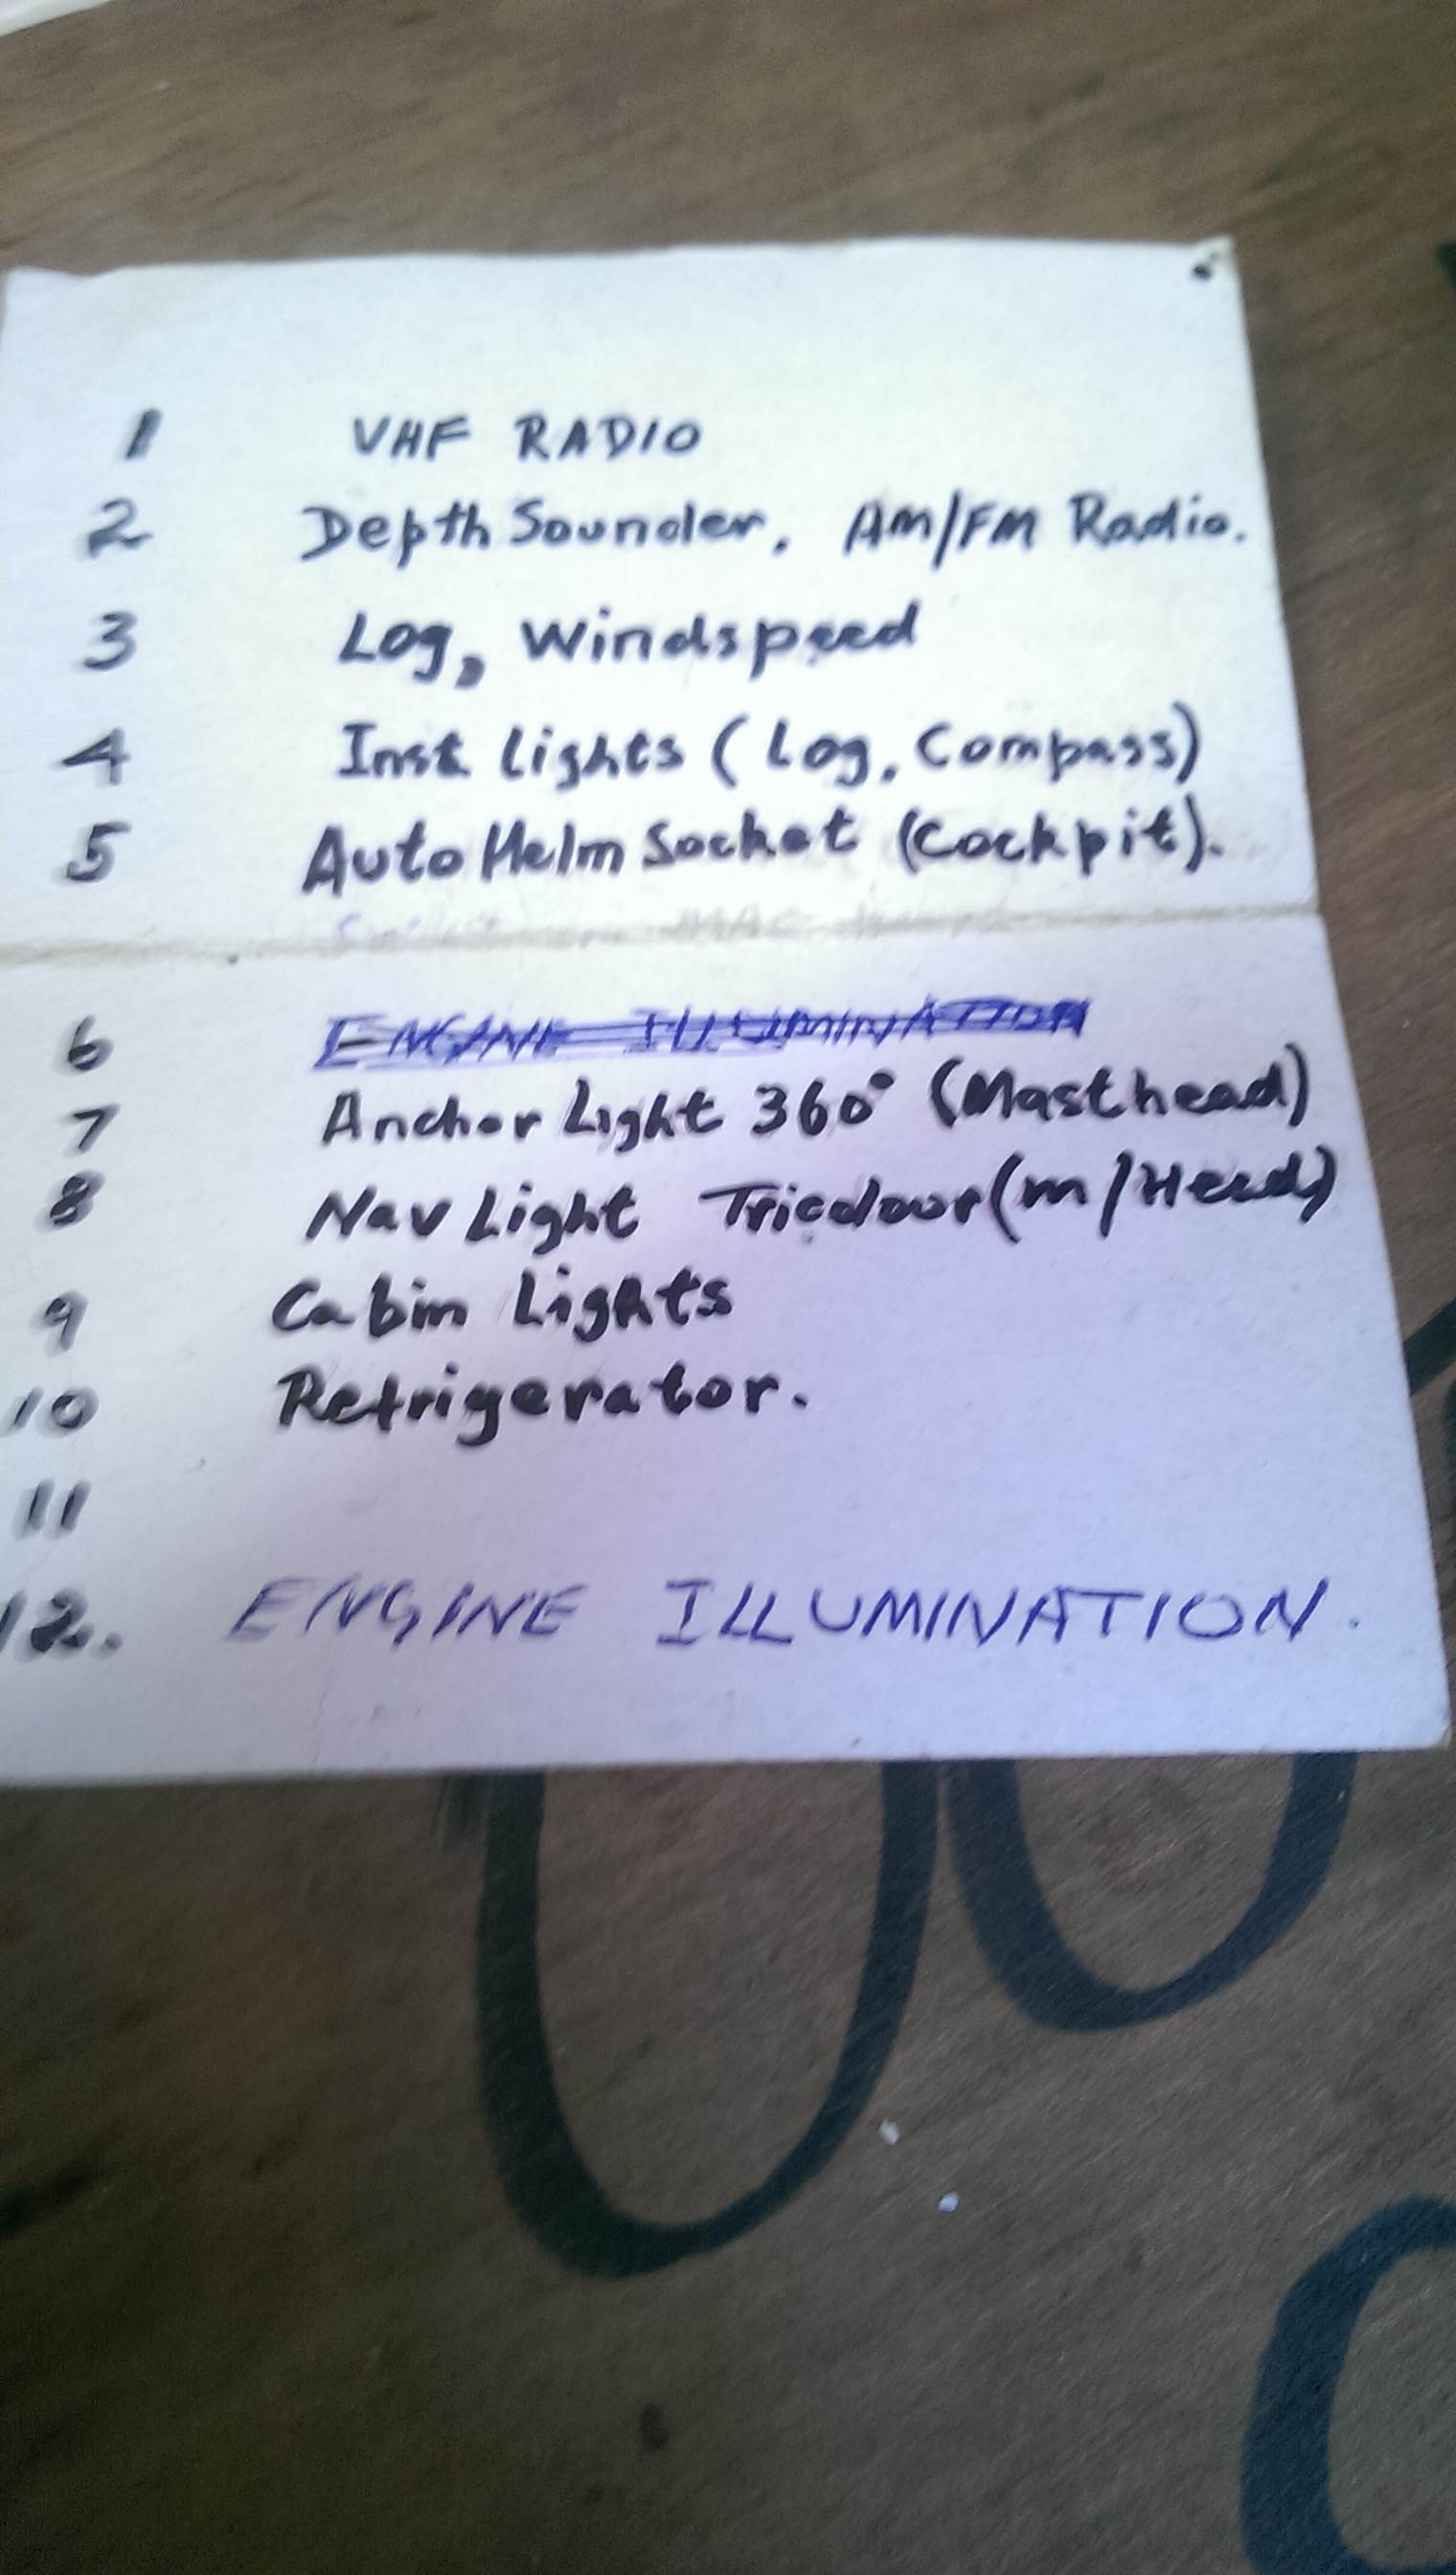 1 VHF RADIO
2 Depth Sounder, AM/FM Radio.
3 Log, Windspeed
4 Inst Lights (Log, Compass)
5 Auto Helm Socket (Cockpit).
6 ENGINE ILLUMINATION
7 Anchor Light 360° (Masthead)
8 Nav Light Tricolour (M/Head)
9 Cabin Lights
10 Refrigerator.
11
12. ENGINE ILLUMINATION.